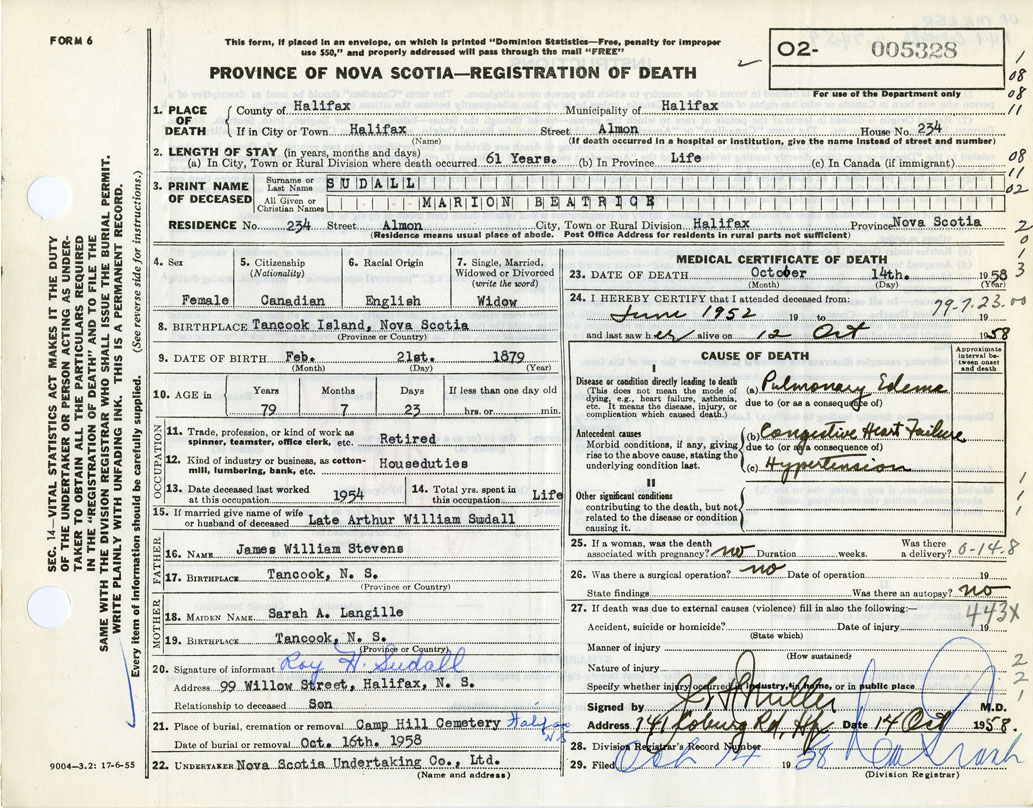 FORM 6
This form, if placed in an envelope, on which is printed "Dominion Statistics—Free, penalty for improper
use $50," and properly addressed will pass through the mail "FREE"
PROVINCE OF NOVA SCOTIA—REGISTRATION OF DEATH
O2- 005328
For use of the Department only
1. PLACE OF DEATH
County of Halifax Municipality of Halifax
If in City or Town Halifax Street Almon House No. 234
(Name) (If death occurred in a hospital or institution, give the name instead of street and number)
2. LENGTH OF STAY (in years, months and days)
(a) In City, Town or Rural Division where death occurred 61 Years. (b) In Province Life (c) In Canada (if immigrant)
3. PRINT NAME OF DECEASED
Surname or Last Name SUDALL
All Given or Christian Names MARION BEATRICE
RESIDENCE No. 234 Street Almon City, Town or Rural Division Halifax Province Nova Scotia
(Residence means usual place of abode. Post Office Address for residents in rural parts not sufficient)
4. Sex
Female
5. Citizenship
(Nationality)
Canadian
6. Racial Origin
English
7. Single, Married,
Widowed or Divorced
(write the word)
Widow
8. BIRTHPLACE Tancook Island, Nova Scotia
(Province or Country)
9. DATE OF BIRTH Feb. 21st. 1879
(Month) (Day) (Year)
10. AGE in
Years Months Days If less than one day old
79 7 23 hrs. or min.
OCCUPATION
11. Trade, profession, or kind of work as
spinner, teamster, office clerk, etc. Retired
12. Kind of industry or business, as cotton-
mill, lumbering, bank, etc. Houseduties
13. Date deceased last worked
at this occupation 1954
14. Total yrs. spent in
this occupation Life
15. If married give name of wife
or husband of deceased Late Arthur William Sudall
FATHER
16. NAME James William Stevens
17. BIRTHPLACE Tancook, N. S.
(Province or Country)
MOTHER
18. MAIDEN NAME Sarah A. Langille
19. BIRTHPLACE Tancook, N. S.
(Province or Country)
20. Signature of informant Roy H. Sudall
Address 99 Willow Street, Halifax, N. S.
Relationship to deceased Son
21. Place of burial, cremation or removal Camp Hill Cemetery Halifax NS
Date of burial or removal Oct. 16th. 1958
22. UNDERTAKER Nova Scotia Undertaking Co., Ltd.
(Name and address)
MEDICAL CERTIFICATE OF DEATH
23. DATE OF DEATH October 14th. 1958
(Month) (Day) (Year)
24. I HEREBY CERTIFY that I attended deceased from: 79-7.23.00
June 1952 19 to 19
and last saw her alive on 12 Oct 1958
CAUSE OF DEATH
Approximate
interval be-
tween onset
and death
I
Disease or condition directly leading to death
(This does not mean the mode of
dying, e.g., heart failure, asthenia,
etc. It means the disease, injury, or
complication which caused death.)
(a) Pulmonary Edema
due to (or as a consequence of)
Antecedent causes
Morbid conditions, if any, giving
rise to the above cause, stating the
underlying condition last.
(b) Congestive Heart Failure
due to (or as a consequence of)
(c) Hypertension
II
Other significant conditions
contributing to the death, but not
related to the disease or condition
causing it.
25. If a woman, was the death Was there
associated with pregnancy? no Duration weeks. a delivery? 0-14.8
26. Was there a surgical operation? no Date of operation 19
State findings Was there an autopsy? no
27. If death was due to external causes (violence) fill in also the following:— 443X
Accident, suicide or homicide? Date of injury 19
(State which)
Manner of injury
(How sustained)
Nature of injury
Specify whether injury occurred in industry, in home, or in public place
Signed by Miller M.D.
Address 141 Coburg Rd, Hfx Date 14 Oct 1958.
28. Division Registrar's Record Number
29. Filed Oct 14 1958
(Division Registrar)
SEC. 14—VITAL STATISTICS ACT MAKES IT THE DUTY
OF THE UNDERTAKER OR PERSON ACTING AS UNDER-
TAKER TO OBTAIN ALL THE PARTICULARS REQUIRED
IN THE "REGISTRATION OF DEATH" AND TO FILE THE
SAME WITH THE DIVISION REGISTRAR WHO SHALL ISSUE THE BURIAL PERMIT.
WRITE PLAINLY WITH UNFADING INK. THIS IS A PERMANENT RECORD.
Every item of information should be carefully supplied. (See reverse side for instructions.)
9004—3.2: 17-6-55
1
08
08
11
08
11
02
2
0
1
3
1
1
1
2
2
1